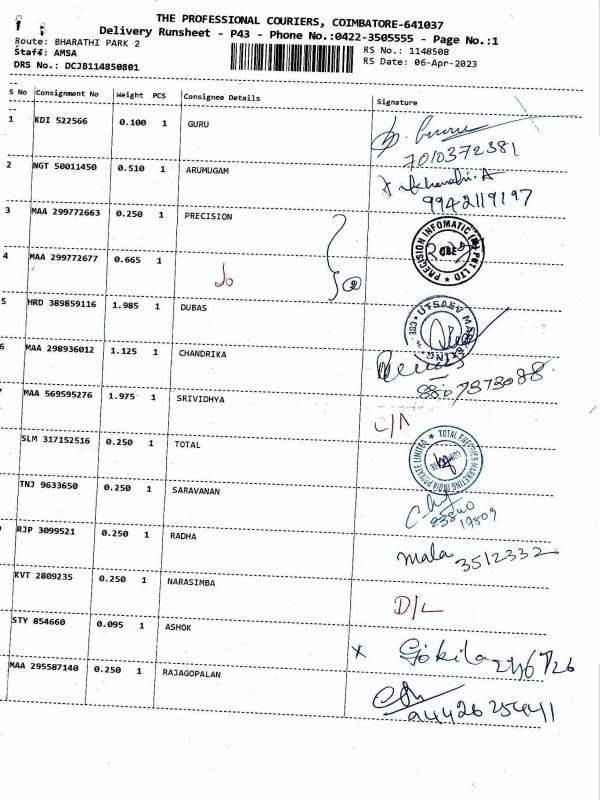 THE PROFESSIONAL COURIERS, COIMBATORE-641037
Delivery Runsheet - P43 - Phone No.:0422-3505555 - Page No.:1
Route: BHARATHI PARK 2
RS No.: 1148508
Staff: AMSA
RS Date: 06-Apr-2023
DRS No.: DCJB114850801
S No Consignment No Weight PCS Consignee Details Signature
1 KDI 522566 0.100 1 GURU
7010372381
2 NGT 50011450 0.510 1 ARUMUGAM
9942119197
3 MAA 299772663 0.250 1 PRECISION
PRECISION INFOMATIC (M) PVT LTD
CBE
4 MAA 299772677 0.665 1
2
5 HRD 389859116 1.985 1 DUBAS
UTSAEV
CBE
6 MAA 298936012 1.125 1 CHANDRIKA
8807373088
MAA 569595276 1.975 1 SRIVIDHYA
C/A
SLM 317152516 0.250 1 TOTAL
TOTAL ENERGIES MARKETING INDIA PRIVATE LIMITED
TNJ 9633650 0.250 1 SARAVANAN
17809
RJP 3099521 0.250 1 RADHA
Mala 3512332
KVT 2809235 0.250 1 NARASIMBA
D/L
STY 854660 0.095 1 ASHOK
x Gokila
MAA 295587140 0.250 1 RAJAGOPALAN